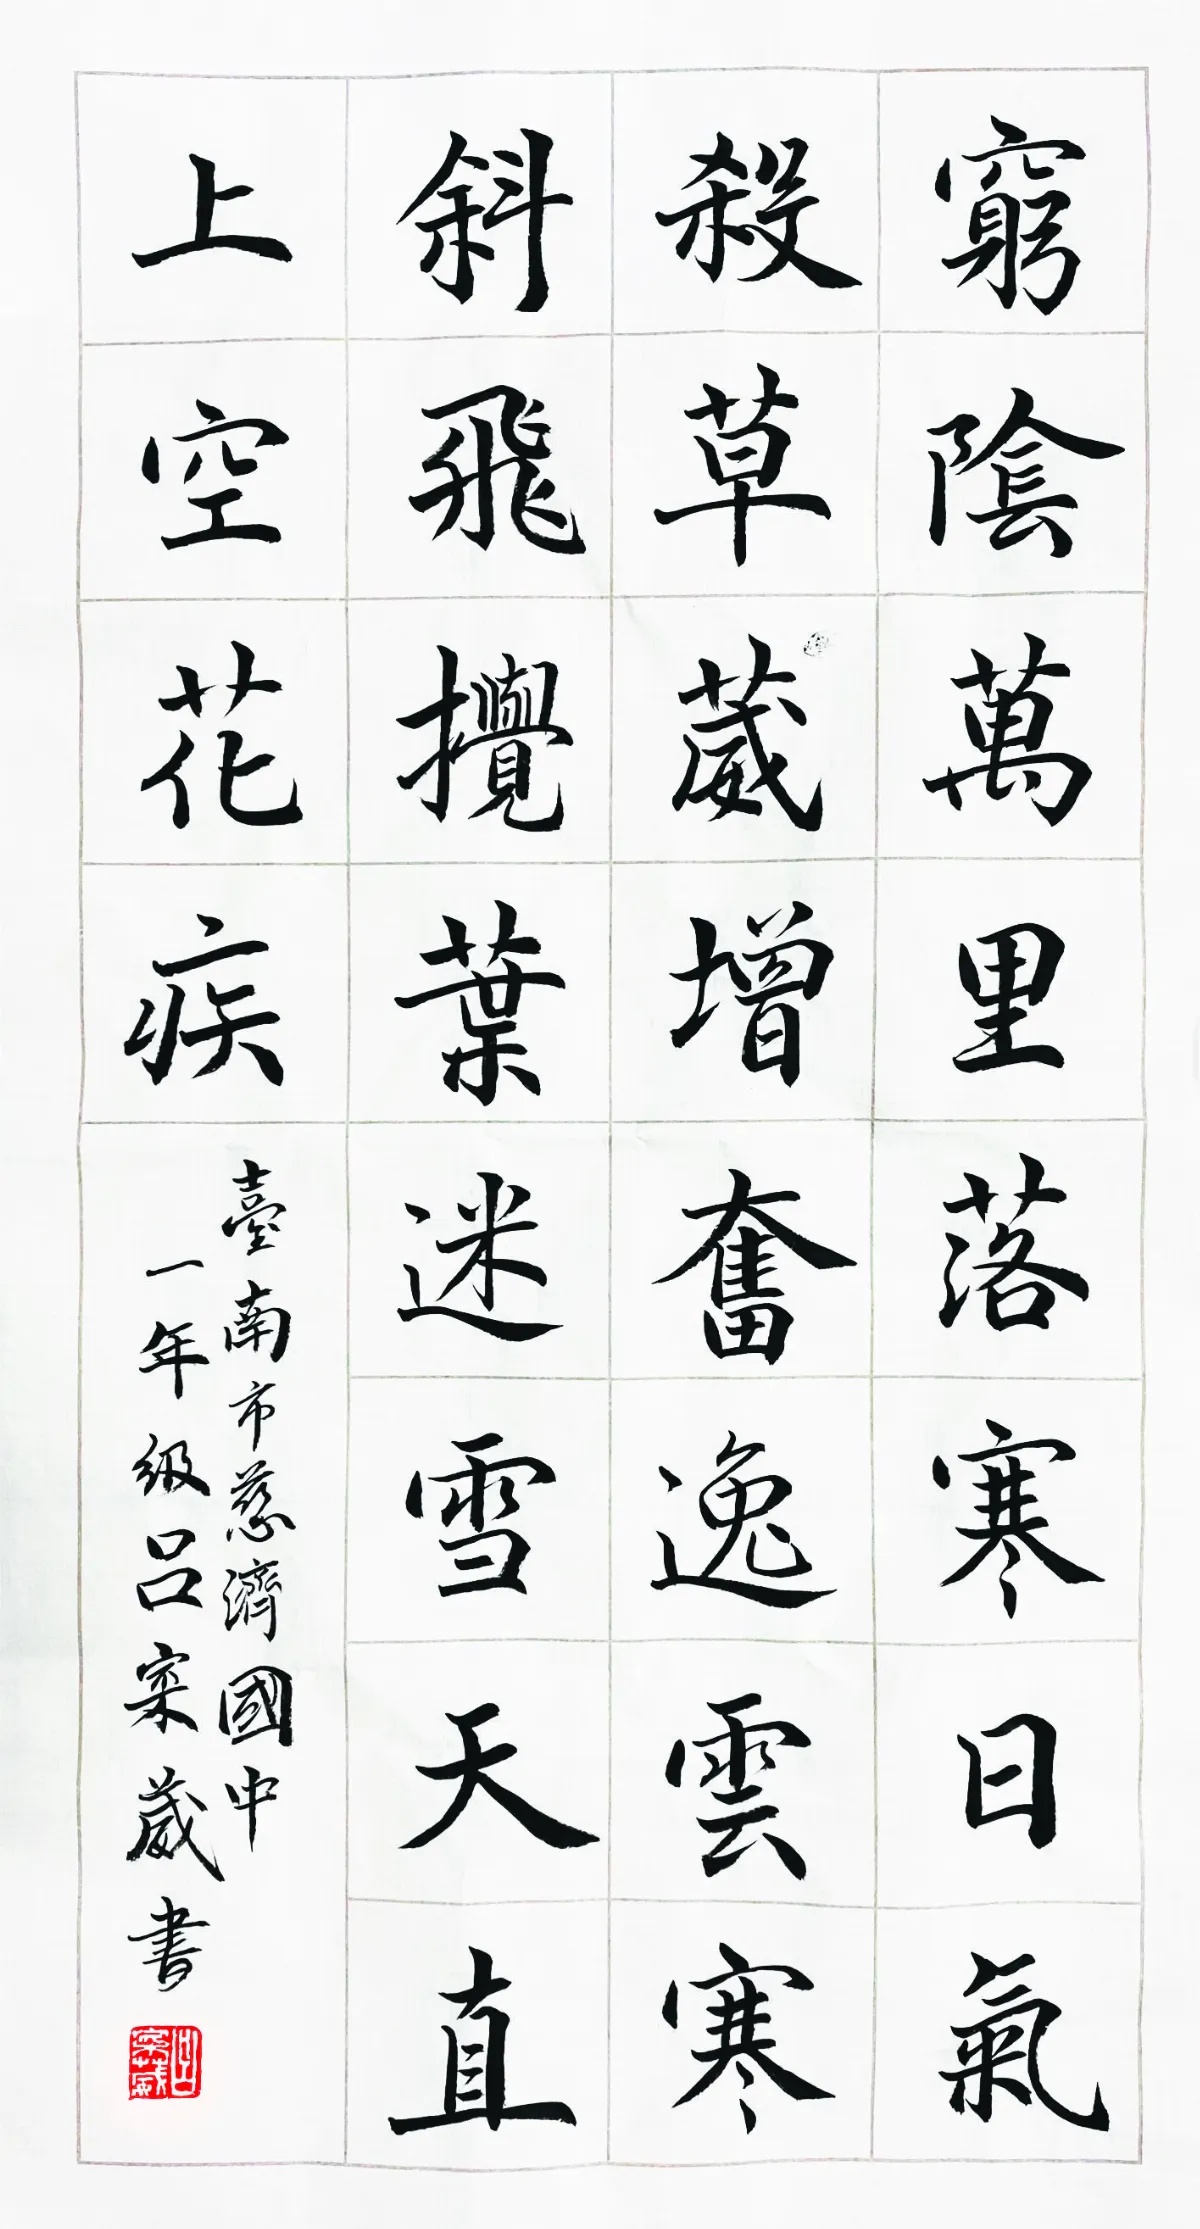 窮陰萬里落寒日氣
殺草葳增奮逸雲寒
斜飛攪葉迷雪天直
上空花疾
臺南市慈濟國中
一年級呂寀葳書
呂寀葳